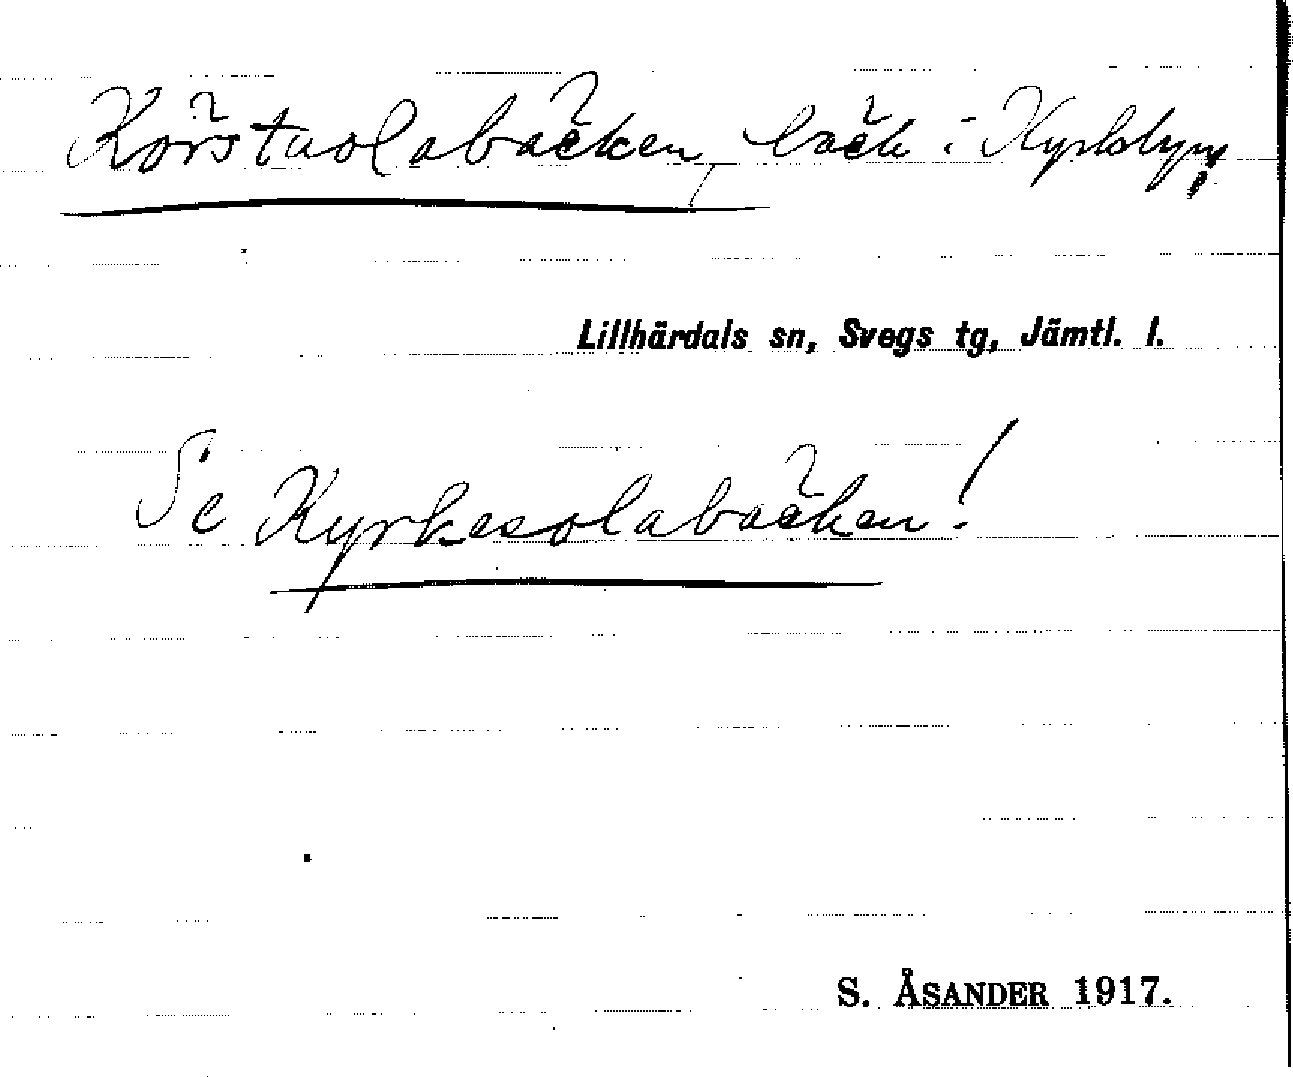 Körstuolabäcken, bäck i Kyrkbyn;
Lillhärdals sn, Svegs tg, Jämtl. l.
Se Kyrkesolabäcken!
S. ÅSANDER 1917.